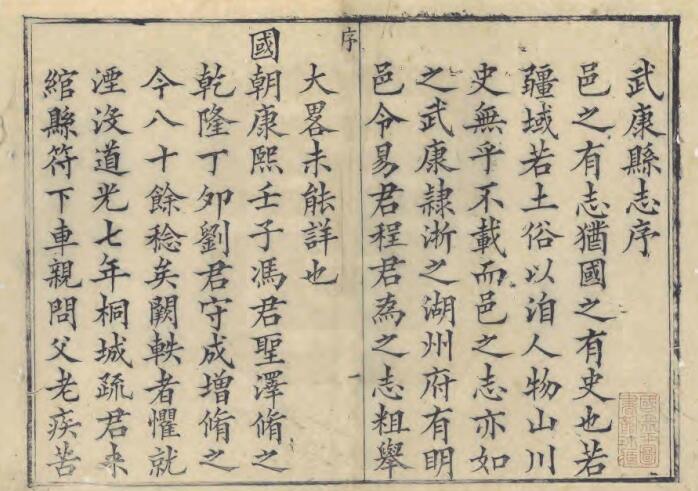 武康縣志序
邑之有志猶國之有史也若
疆域若土俗以洎人物山川
史無乎不載而邑之志亦如
之武康隷浙之湖州府有明
邑令易君程君為之志粗舉
序
一
大畧未能詳也
國朝康熙壬子馮君聖澤脩之
乾隆丁夘劉君守成增脩之
今八十餘稔矣闕軼者懼就
湮沒道光七年桐城疏君来
綰縣符下車親問父老疾苦